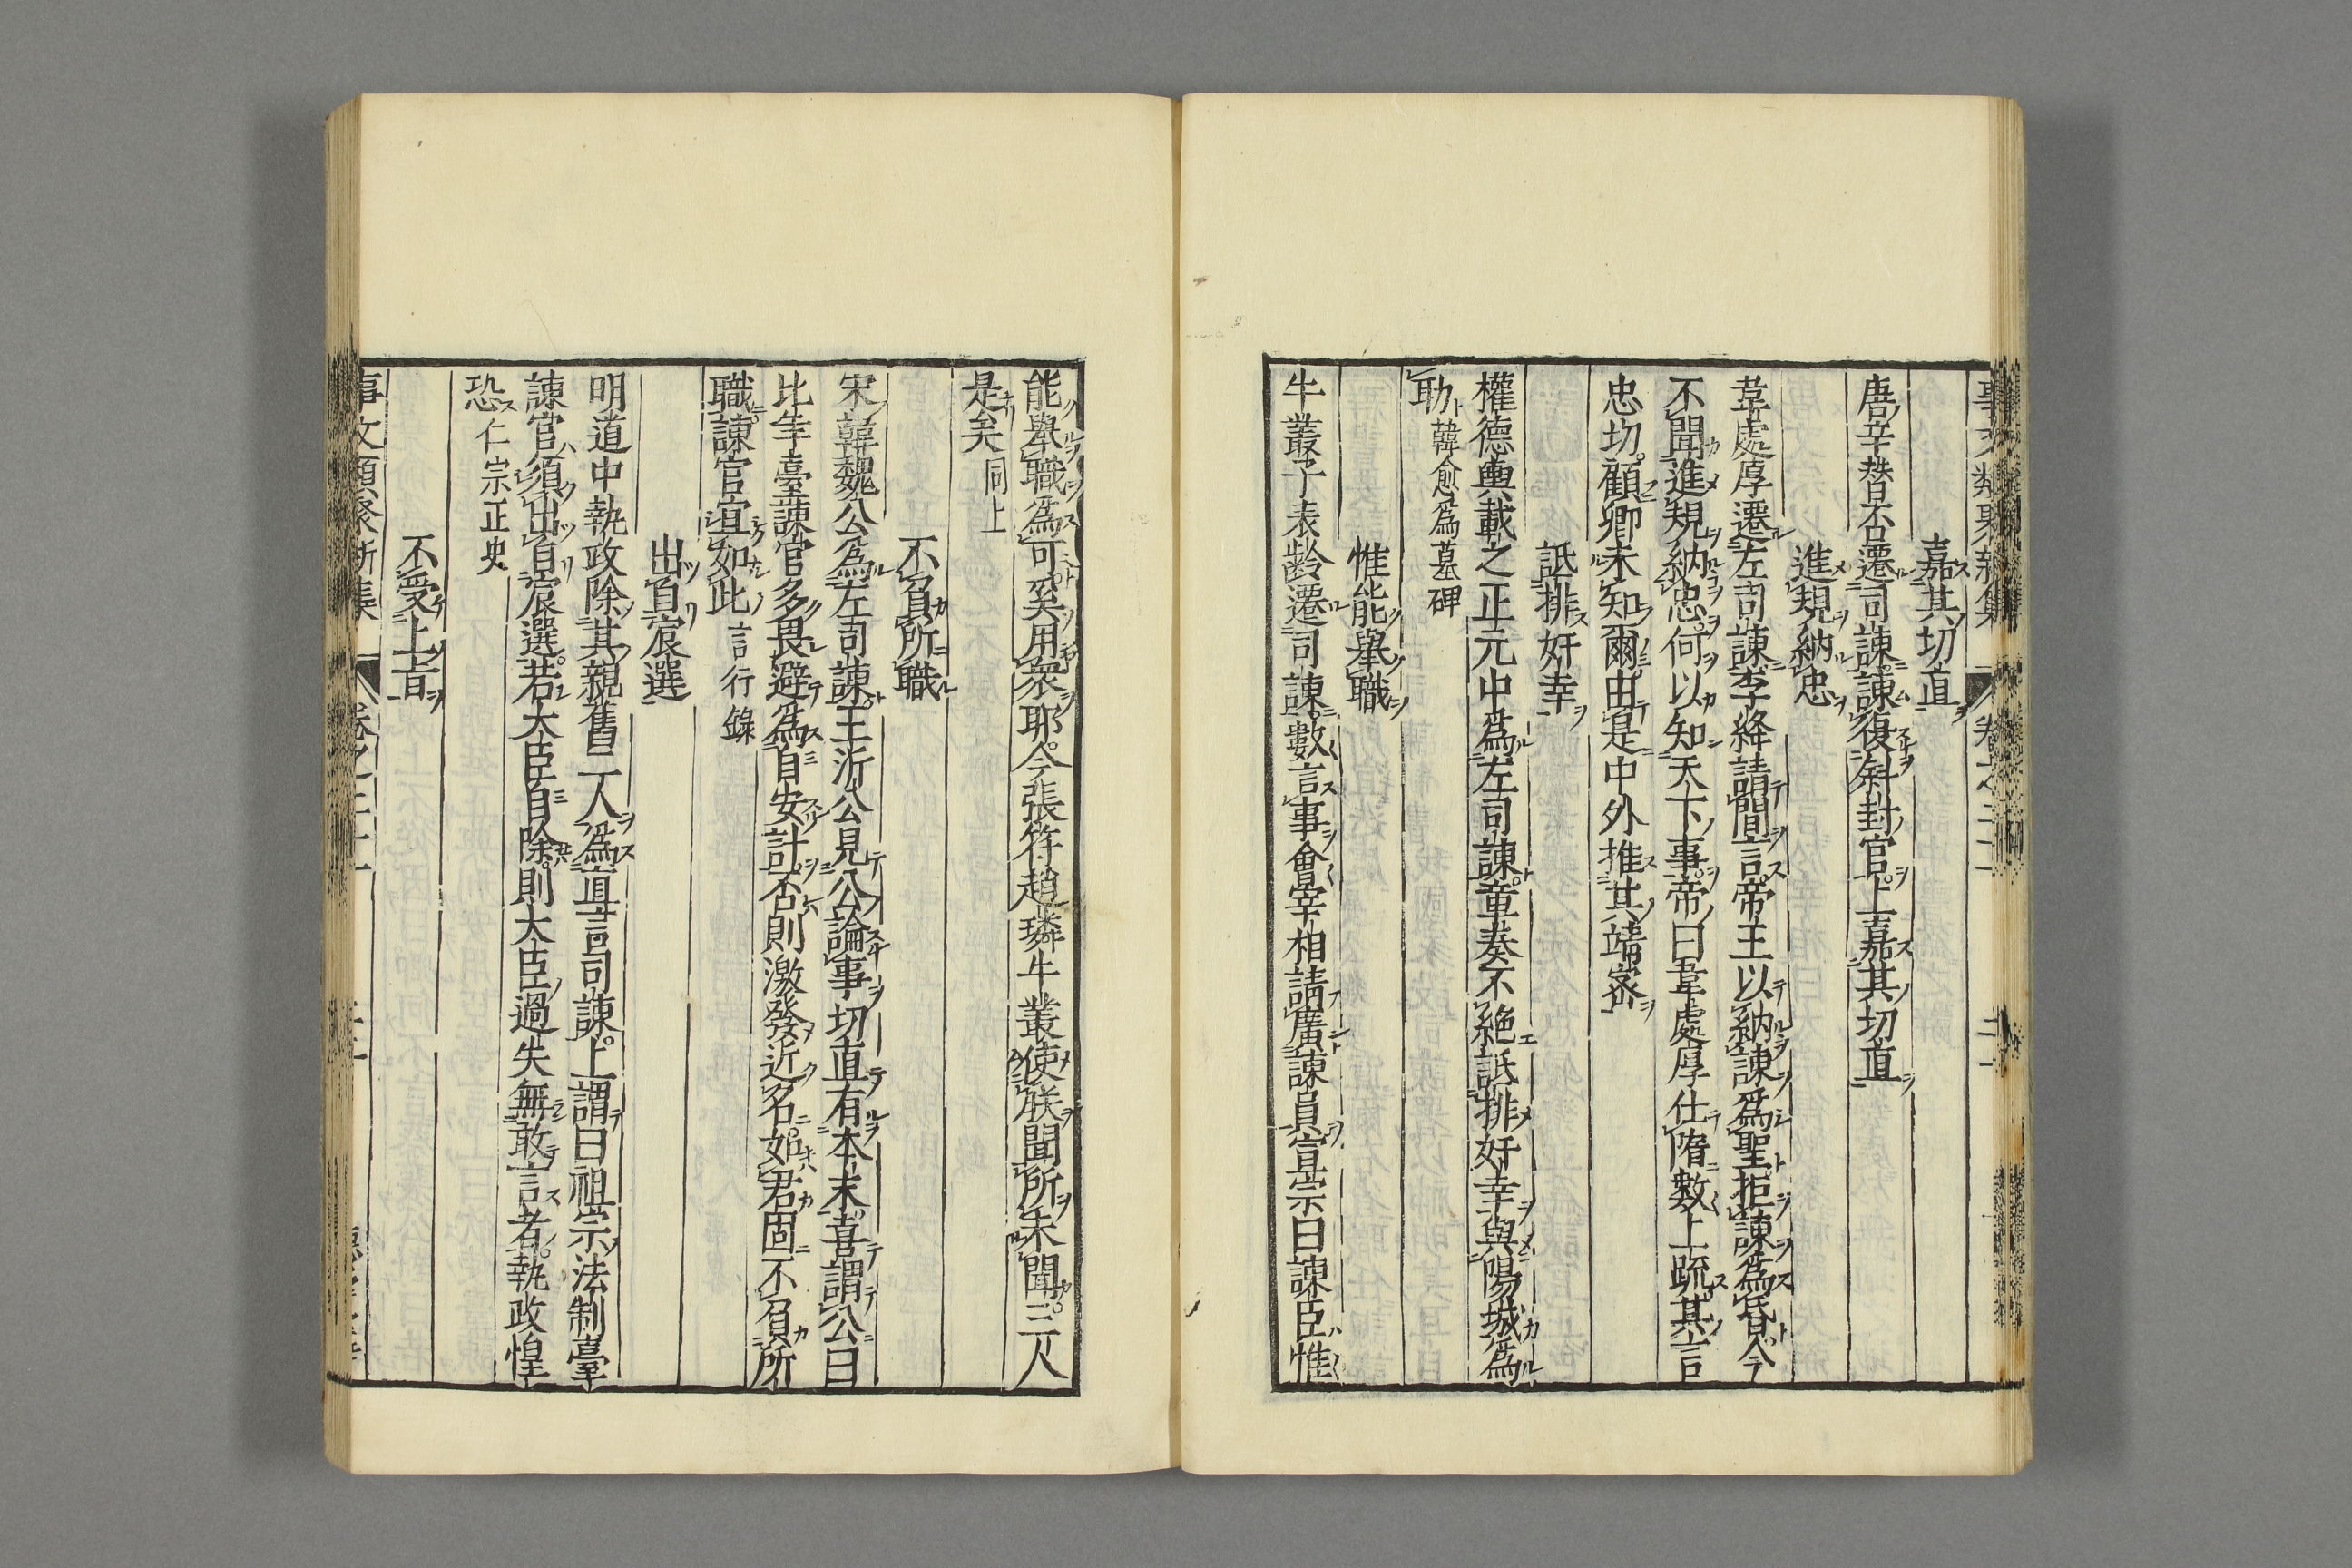 嘉其切直
唐辛替否遷司諫諫復斜封官上嘉其切直
進規納忠
韋處厚遷左司諫李絳請間言帝王以納諫爲聖拒諫爲昏今
不聞進規納忠何以知天下事帝曰韋處厚仕隋數上疏其言
忠切顧卿未知爾由是中外推其靖密
詆排奸幸
權德輿載之正元中爲左司諫章奏不絶詆排奸幸與陽城爲
助韓愈爲墓碑
惟能舉職
牛叢子表齡遷司諫數言事會宰相請廣諫員宣宗曰諫臣惟
能舉職爲可奚用衆耶今張符趙璘牛叢使朕聞所未聞三人
是矣同上
不負所職
宋韓魏公爲左司諫王沂公見公論事切直有本末喜謂公曰
比年臺諫官多畏避爲自安計否則激發近名如君固不負所
職諫官宜如此言行錄
出自宸選
明道中執政除其親舊二人爲直言司諫上謂曰祖宗法制臺
諫官須出自宸選若大臣自除則大臣過失無敢言者執政惶
恐仁宗正史
不受上旨
事文類聚新集 卷之二十一